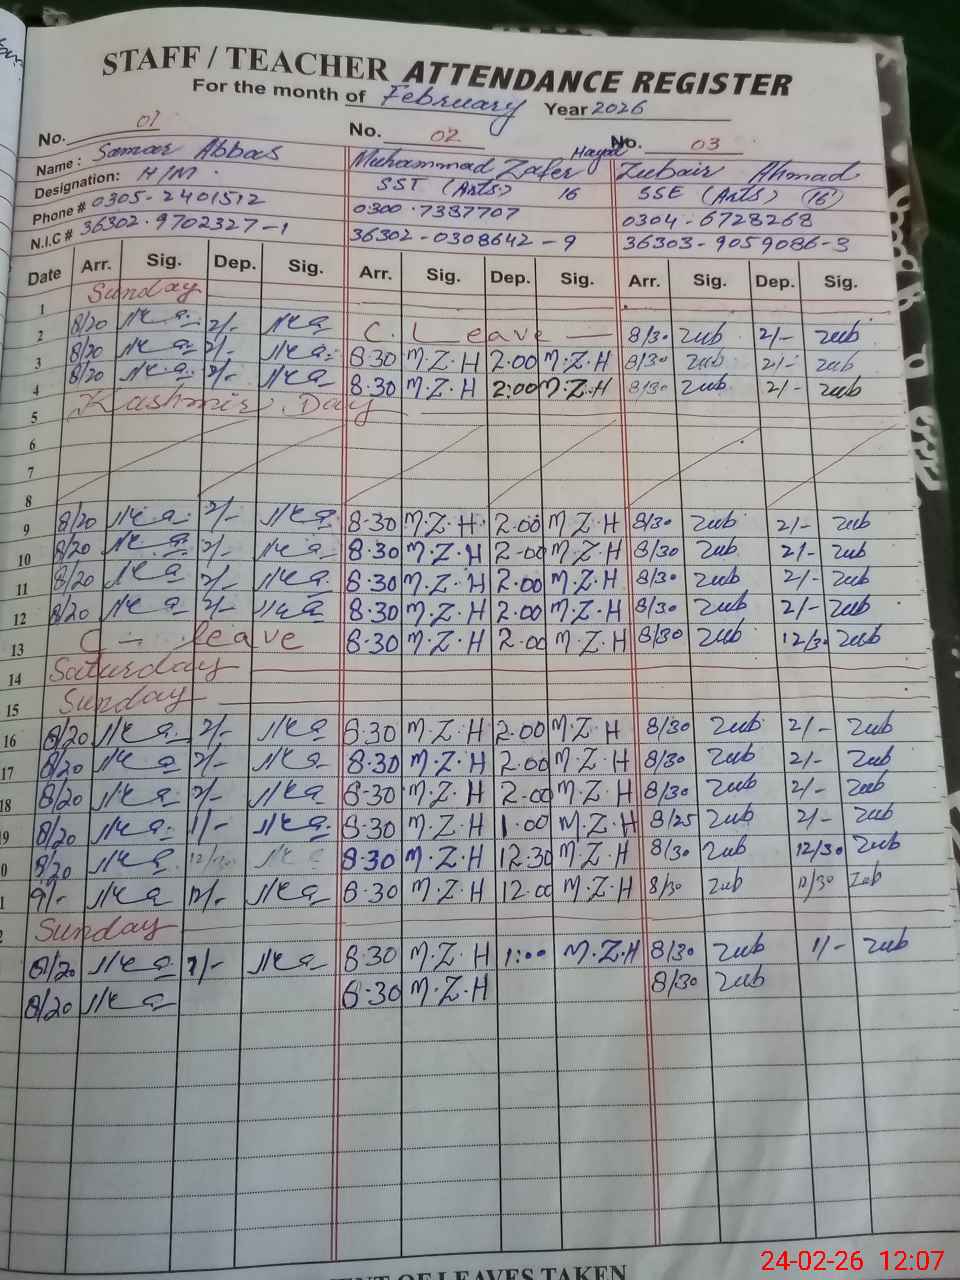 STAFF / TEACHER ATTENDANCE REGISTER
For the month of February Year 2026
No. 01 No. 02 No. 03
Name: Samar Abbas Muhammad Zafer Hayat Zubair Ahmad
Designation: H/M. SST (Arts) 16 SSE (Arts) (16)
Phone # 0305-2401512 0300.7387707 0304-6728268
N.I.C # 36302.9702327-1 36302-0308642-9 36303-9059086-3
Date Arr. Sig. Dep. Sig. Arr. Sig. Dep. Sig. Arr. Sig. Dep. Sig.
1 Sunday
2 8/20 2/- C. Leave 8/30 Zub 2/- Zub
3 8/20 2/- 8.30 M.Z.H 2.00 M.Z.H 8/30 Zub 2/- Zub
4 8/20 2/- 8.30 M.Z.H 2:00 M.Z.H 8/30 Zub 2/- Zub
5 Kashmir Day
6
7
8
9 8/20 2/- 8.30 M.Z.H 2.00 M.Z.H 8/30 Zub 2/- Zub
10 8/20 2/- 8.30 M.Z.H 2.00 M.Z.H 8/30 Zub 2/- Zub
11 8/20 2/- 8.30 M.Z.H 2.00 M.Z.H 8/30 Zub 2/- Zub
12 8/20 2/- 8.30 M.Z.H 2.00 M.Z.H 8/30 Zub 2/- Zub
13 C - leave 8.30 M.Z.H 2.00 M.Z.H 8/30 Zub 12/30 Zub
14 Saturday
15 Sunday
16 8/20 2/- 8.30 M.Z.H 2.00 M.Z.H 8/30 Zub 2/- Zub
17 8/20 2/- 8.30 M.Z.H 2.00 M.Z.H 8/30 Zub 2/- Zub
18 8/20 2/- 8.30 M.Z.H 2.00 M.Z.H 8/30 Zub 2/- Zub
9 8/20 1/- 8.30 M.Z.H 1.00 M.Z.H 8/25 Zub 2/- Zub
0 8/20 8.30 M.Z.H 12.30 M.Z.H 8/30 Zub 12/30 Zub
1 9/- 12/- 8.30 M.Z.H 12.00 M.Z.H 8/30 Zub 11/30 Zub
2 Sunday
8/20 1/- 8.30 M.Z.H 1:00 M.Z.H 8/30 Zub 1/- Zub
8/20 8.30 M.Z.H 8/30 Zub
OF LEAVES TAKEN
24-02-26 12:07